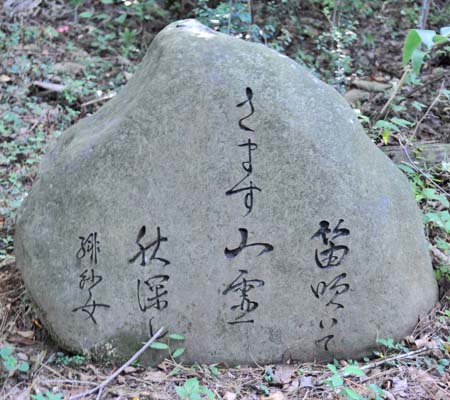 笛吹いて
さます山霊
秋深し
緋紗女